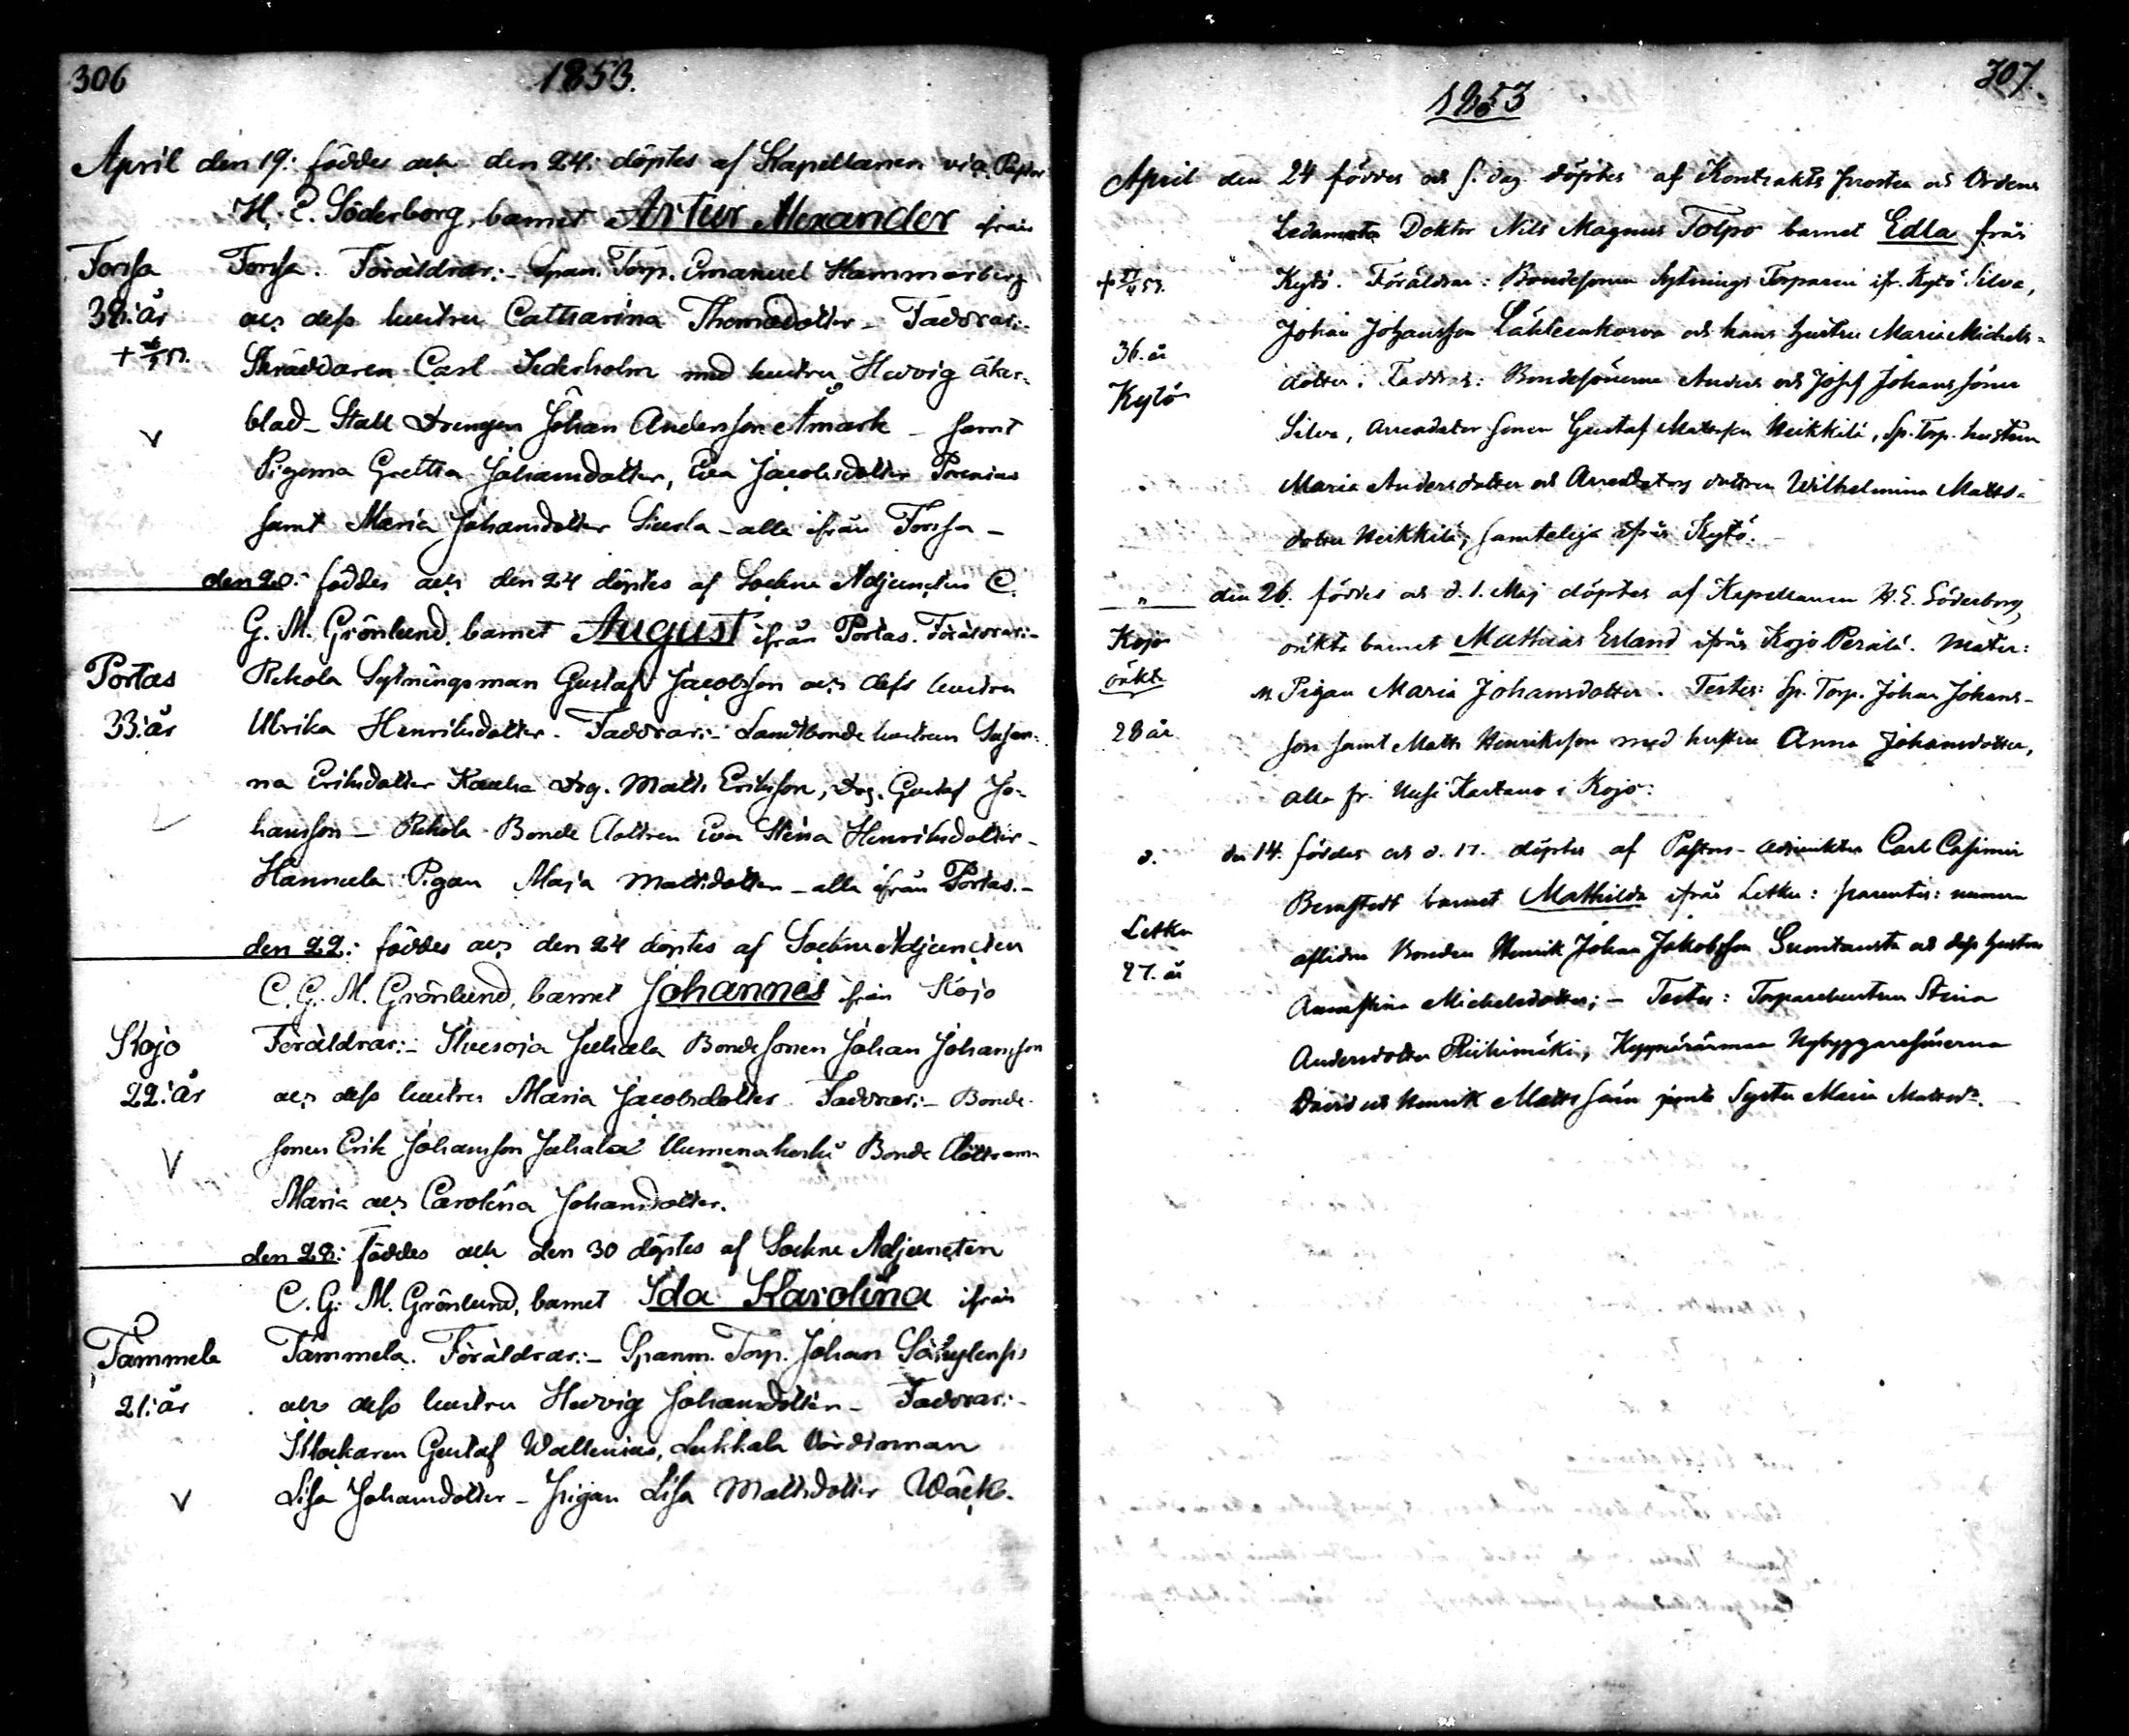 306
1853.
April den 19: föddes och den 24: döptes af Kapellanen vice Pastor
H. E. Söderborg, barnet Artur Alexander ifrån
Forssa Forssa. Föräldrar:- Span. Torp. Emanuel Hammarberg
38: år och dess hustru Catharina Thomædotter - Faddrar:-
Skräddaren Carl Sederholm med hustru Hedvig Åker-
blad - Stall Drengen Johan Andersson Åmark - samt
Pigorna Gretha Johansdotter, Eva Jacobsdotter Porenius
samt Maria Johansdotter - alla ifrån Forssa -
den 20: föddes och den 24 döptes af Sockne Adjuncten C.
G. M. Grönlund, barnet August ifrån Portas. Föräldrar:-
Portas Rekola Sytningsman Gustaf Jacobsson och dess hustru
33: år Ulrika Henriksdotter. Faddrar:- Landbonde hustrun Susan-
na Eriksdotter Kauha Drg. Matts Eriksson, Drg. Gustaf Jo-
hansson - Rekola Bonde dottren Eva Stina Henriksdotter -
Hannula Pigan Maja Mattsdotter - alla ifrån Portas. -
den 22: föddes och den 24 döptes af Sockne Adjuncten
C. G. M. Grönlund, barnet Johannes ifrån Kojo
Kojo Föräldrar:- Juhala Bonde Sonen Johan Johansson
22: år och dess hustru Maria Jacobsdotter Faddrar:- Bonde-
sonen Erik Johansson Juhala Bonde döttrarna
Maria och Carolina Johansdotter.
den 28: föddes och den 30 döptes af Sockne Adjuncten
C. G. M. Grönlund, barnet Ida Karolina ifrån
Tammela Tammela. Föräldrar:- Spanm. Torp. Johan
21: år och dess hustru Hedvig Johansdotter - Faddrar:-
Klockaren Gustaf Wallenius, Lukkala Värdinnan
Lisa Johansdotter - Pigan Lisa Mattsdotter Wäck.
307.
1853
April den 24 föddes och s. dag döptes af Kontrakts prosten och Ordens
Ledamoten Doktor Nils Magnus Tolpo barnet Edla från
Kytö. Föräldrar: Bondesonen Sytnings Torparen ifr. Kytö Silva,
36. år Johan Johansson och hans hustru Maria Michels-
Kytö dotter. Faddrar: Bondesönerna Anders och Josef Johans söner
Silva, Arrendator sonen Gustaf Mattsson Heikkilä, Sp. Torp. hustrun
Maria Andersdotter och Arrendators dottren Wilhelmina Matts-
dotter Heikkilä, samteliga ifrån Kytö.
" den 26. föddes och d. 1. Maj döptes af Kapellanen H. E. Söderborg
Kojo oäkta barnet Mathias Erland ifrån Kojo Perälä. Mater:
oäkta Pigan Maria Johansdotter. Testes: Sp. Torp. Johan Johans-
28 år son samt Matts Henriksson med hustru Anna Johansdotter,
alla fr. Uusi Kartano i Kojo:
d. den 14. föddes och d. 17. döptes af Pastors-adjunkten Carl Casimir
barnet Mathilda ifrån Letku: parentes: numera
Letku aflidne Bonden Henrik Johan Jakobsson Suontausta och dess hustru
27. år Annastina Michelsdotter; - Testes: Torparehustrun Stina
Andersdotter Riihimäki, Nybyggaresönerna
David och Henrik Matts söner jemte Syster Maria Mattsdr.